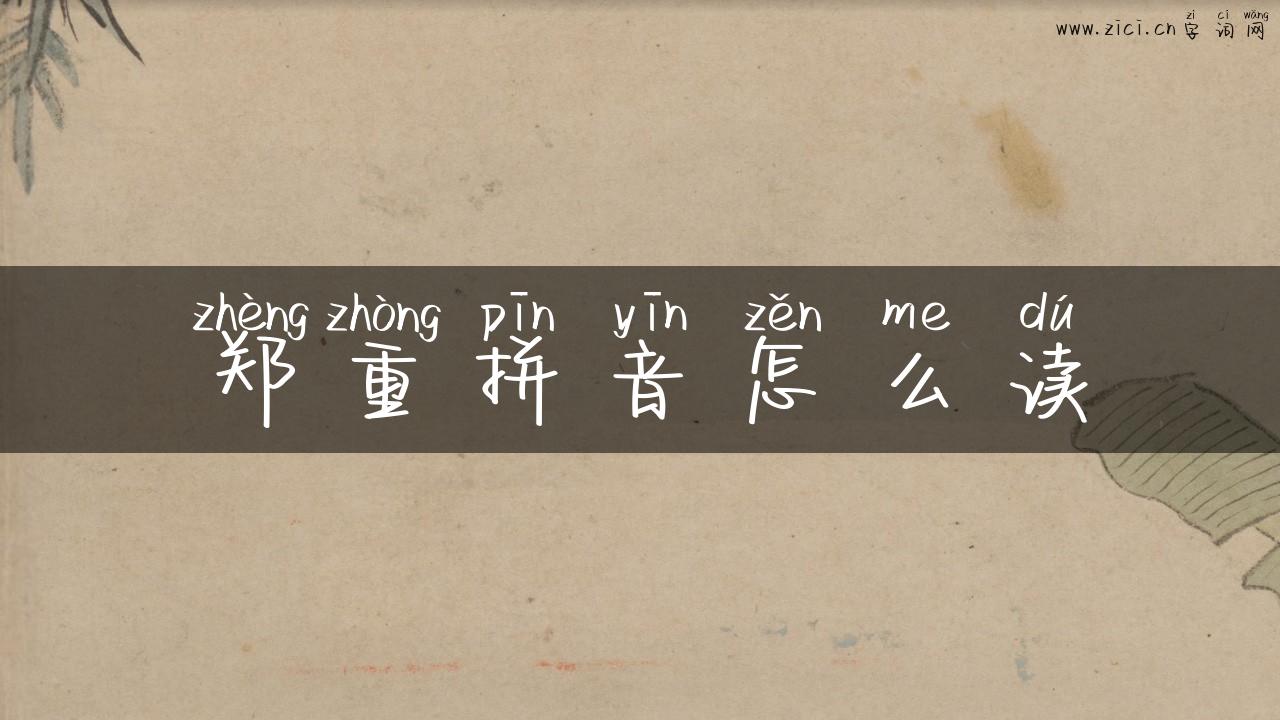 zì cí wǎng
www.zici.cn 字词网
zhèng zhòng pīn yīn zěn me dú
郑重拼音怎么读